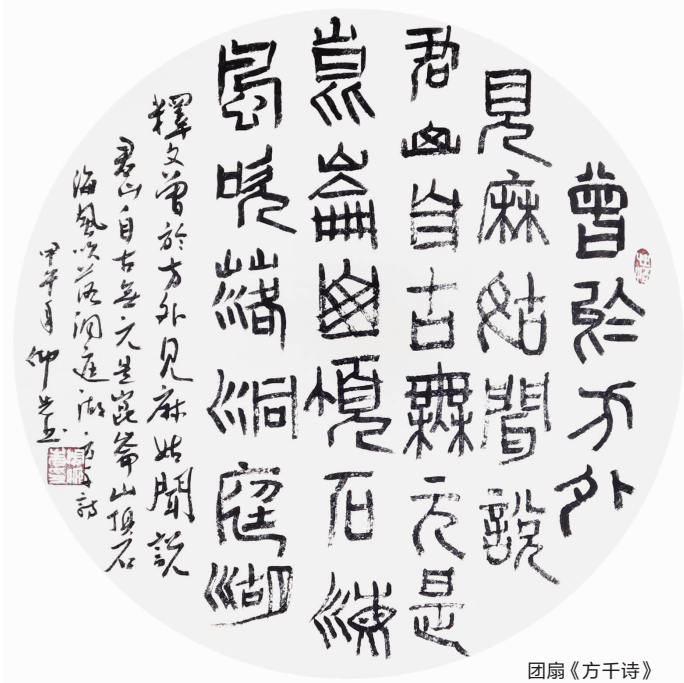 曾於方外
見麻姑聞說
君山自古無元是
崑崙山頂石海
風吹落洞庭湖
釋文曾於方外見麻姑聞說
君山自古無元是崑崙山頂石
海風吹落洞庭湖方干詩
甲午
团扇《方千诗》